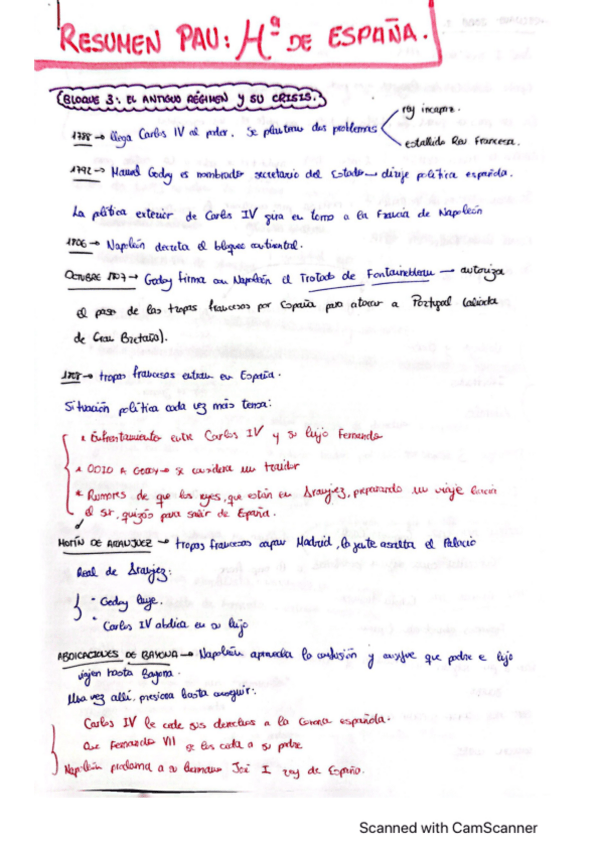 RESUMEN PAU: Hª DE ESPAÑA.
BLOQUE 3: EL ANTIGUO RÉGIMEN Y SU CRISIS.
rey incapaz.
1788 → llega Carlos IV al poder. Se plantean dos problemas
estallido Rev Francesa.
1792 → Manuel Godoy es nombrado secretario del Estado → dirije política española.
La política exterior de Carlos IV gira en torno a la Francia de Napoleón
1806 → Napoleón decreta el bloqueo continental.
OCTUBRE 1807 → Godoy firma con Napoleón el Tratado de Fontainebleau → autoriza
el paso de las tropas francesas por España para atacar a Portugal (aliada
de Gran Bretaña).
1808 → tropas francesas entran en España.
Situación política cada vez más tensa:
Enfrentamiento entre Carlos IV y su hijo Fernando
ODIO A GODOY → se considera un traidor
Rumores de que los reyes, que están en Aranjuez, preparando un viaje hacia
el sr, quizás para salir de España.
MOTÍN DE ARANJUEZ → tropas francesas ocupan Madrid, la gente asalta el Palacio
Real de Aranjez:
Godoy huye.
Carlos IV abdica en su hijo
ABDICACIONES DE BAYONA → Napoleón aprovecha la confusión y consigue que padre e hijo
viajen hasta Bayona.
Una vez allí, presiona hasta conseguir:
Carlos IV le cede sis derechos a la Corona española.
Que Fernando VII se los ceda a su padre
Napoleón proclama a su hermano José I rey de España.
Scanned with CamScanner